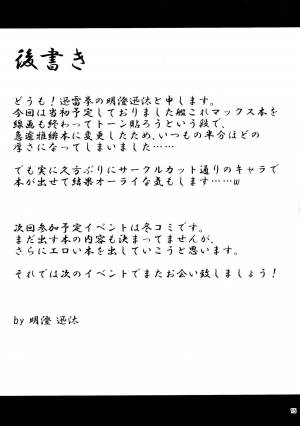 後書き
どうも！迅雷拳の明澄迅汰と申します。
今回は当初予定しておりました艦これマックス本を
線画も終わってトーン貼ろうという段で、
急遽雅緋本に変更したため、いつもの半分ほどの
厚さになってしまいました……
でも実に久方ぶりにサークルカット通りのキャラで
本が出せて結果オーライな気もします……w
次回参加予定イベントは冬コミです。
まだ出す本の内容も決まってませんが、
さらにエロい本を出していこうと思います。
それでは次のイベントでまたお会い致しましょう！
by 明澄 迅汰